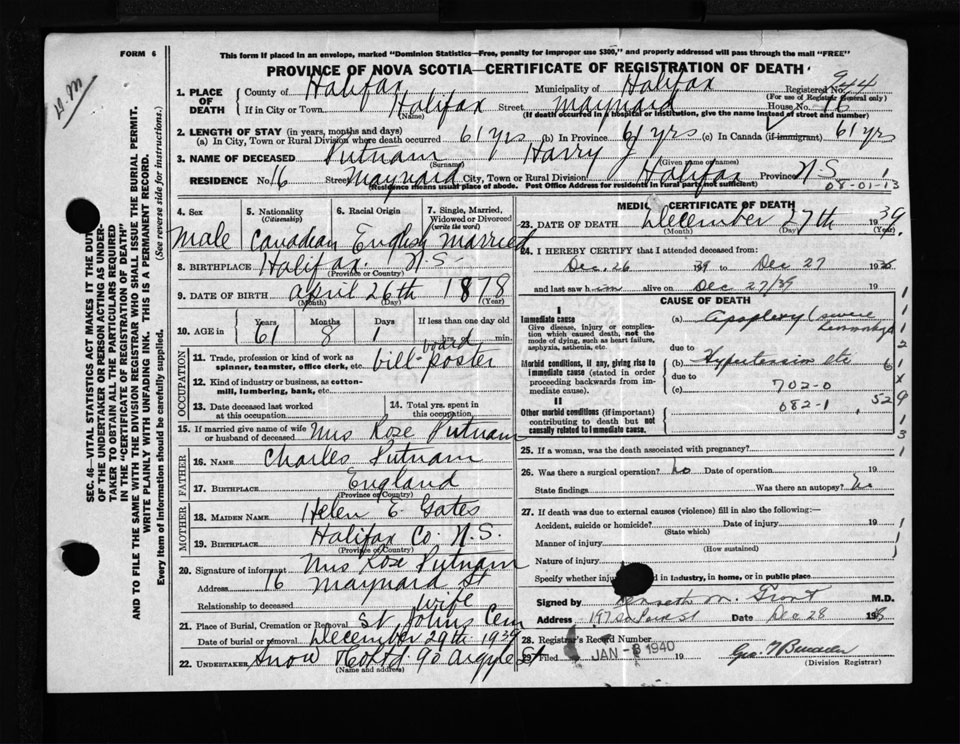 FORM 6
This form if placed in an envelope, marked "Dominion Statistics—Free, penalty for improper use $300," and properly addressed will pass through the mail "FREE"
PROVINCE OF NOVA SCOTIA—CERTIFICATE OF REGISTRATION OF DEATH
1. PLACE OF DEATH County of Halifax Municipality of Halifax Registered No. 944
(For use of Registrar General only)
If in City or Town Halifax Street Maynard House No. 16
(Name) (If death occurred in a hospital or institution, give the name instead of street and number)
2. LENGTH OF STAY (in years, months and days)
(a) In City, Town or Rural Division where death occurred 61 yrs (b) In Province 61 yrs (c) In Canada (if immigrant) 61 yrs
3. NAME OF DECEASED Putnam Harry J
(Surname) (Given name or names)
RESIDENCE No. 16 Street Maynard City, Town or Rural Division Halifax Province N S
(Residence means usual place of abode. Post Office Address for residents in rural parts not sufficient) 08-01-13
4. Sex Male
5. Nationality (Citizenship) Canadian
6. Racial Origin English
7. Single, Married, Widowed or Divorced (write the word) Married
8. BIRTHPLACE Halifax. N.S.
(Province or Country)
9. DATE OF BIRTH April 26th 1878
(Month) (Day) (Year)
10. AGE in Years 61 Months 8 Days 1 If less than one day old hrs. min.
OCCUPATION
11. Trade, profession or kind of work as spinner, teamster, office clerk, etc. bill-poster
12. Kind of industry or business, as cotton-mill, lumbering, bank, etc.
13. Date deceased last worked at this occupation
14. Total yrs. spent in this occupation
15. If married give name of wife or husband of deceased Mrs Rose Putnam
FATHER
16. NAME Charles Putnam
17. BIRTHPLACE England
(Province or Country)
MOTHER
18. MAIDEN NAME Helen E Gates
19. BIRTHPLACE Halifax Co. N.S.
(Province or Country)
20. Signature of informant Mrs Rose Putnam
16 Maynard St
Relationship to deceased wife
21. Place of Burial, Cremation or Removal St Johns Cem
Date of burial or removal December 29th 1939
22. UNDERTAKER Snow &Co Ltd. 90 Argyle St
(Name and address)
MEDICAL CERTIFICATE OF DEATH
23. DATE OF DEATH December 27th 1939.
(Month) (Day) (Year)
24. I HEREBY CERTIFY that I attended deceased from:
Dec. 26 1939 to Dec 27 19
and last saw him alive on Dec 27/39 19
CAUSE OF DEATH
I
Immediate cause
Give disease, injury or complication which caused death, not the mode of dying, such as heart failure, asphyxia, asthenia, etc.
(a) Apoplexy (severe hemorrhage
due to
Morbid conditions, if any, giving rise to immediate cause (stated in order proceeding backwards from immediate cause).
(b) Hypertension etc
due to
(c) 702-0
082-1
529
II
Other morbid conditions (if important) contributing to death but not causally related to immediate cause.
25. If a woman, was the death associated with pregnancy?
26. Was there a surgical operation? no Date of operation 19
State findings Was there an autopsy? no
27. If death was due to external causes (violence) fill in also the following:—
Accident, suicide or homicide? Date of injury 19
(State which)
Manner of injury
(How sustained)
Nature of injury
Specify whether injury in industry, in home, or in public place
Signed by Kenneth M. Grant M.D.
Address 197 St Date Dec 28 19
28. Registrar's Record Number
Filed JAN -3 1940 19
(Division Registrar)
SEC. 46—VITAL STATISTICS ACT MAKES IT THE DUTY
OF THE UNDERTAKER OR PERSON ACTING AS UNDER-
TAKER TO OBTAIN ALL THE PARTICULARS REQUIRED
IN THE "CERTIFICATE OF REGISTRATION OF DEATH"
AND TO FILE THE SAME WITH THE DIVISION REGISTRAR WHO SHALL ISSUE THE BURIAL PERMIT.
WRITE PLAINLY WITH UNFADING INK. THIS IS A PERMANENT RECORD.
Every item of information should be carefully supplied. (See reverse side for instructions.)